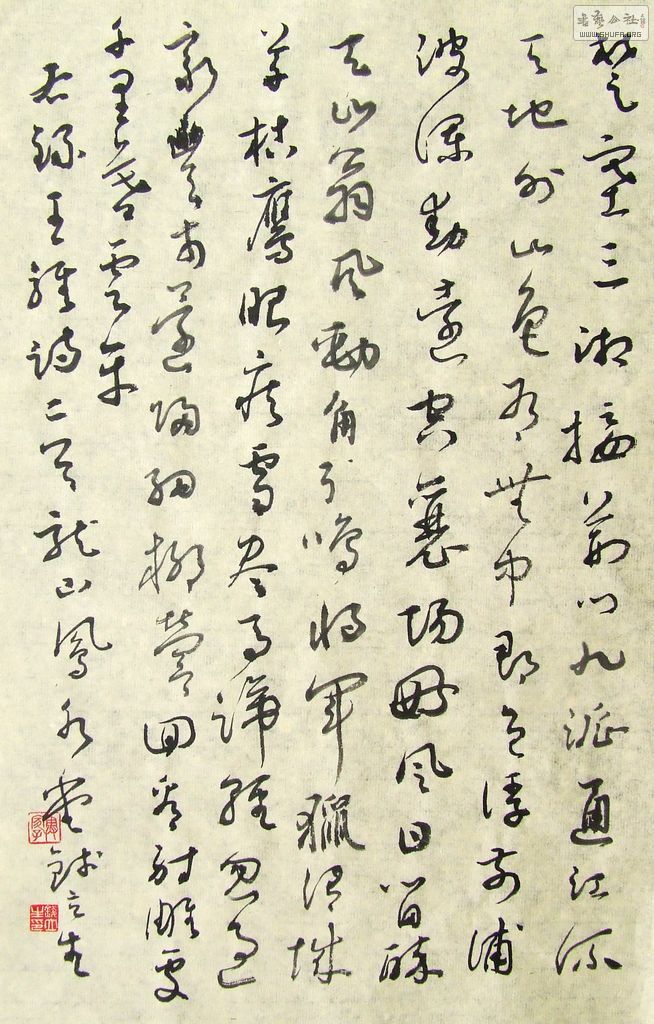 書藝公社
WWW.SHUFA.ORG
楚塞三湘接荊門九派通江流
天地外山色有無中郡邑浮前浦
波瀾動遠空襄陽好風日留醉
與山翁風勁角弓鳴將軍獵渭城
草枯鷹眼疾雪尽馬蹄輕忽過
新豐市還歸細柳營回看射雕處
千里暮雲平
右錄王維詩二首龍山鳳水堂錢立生